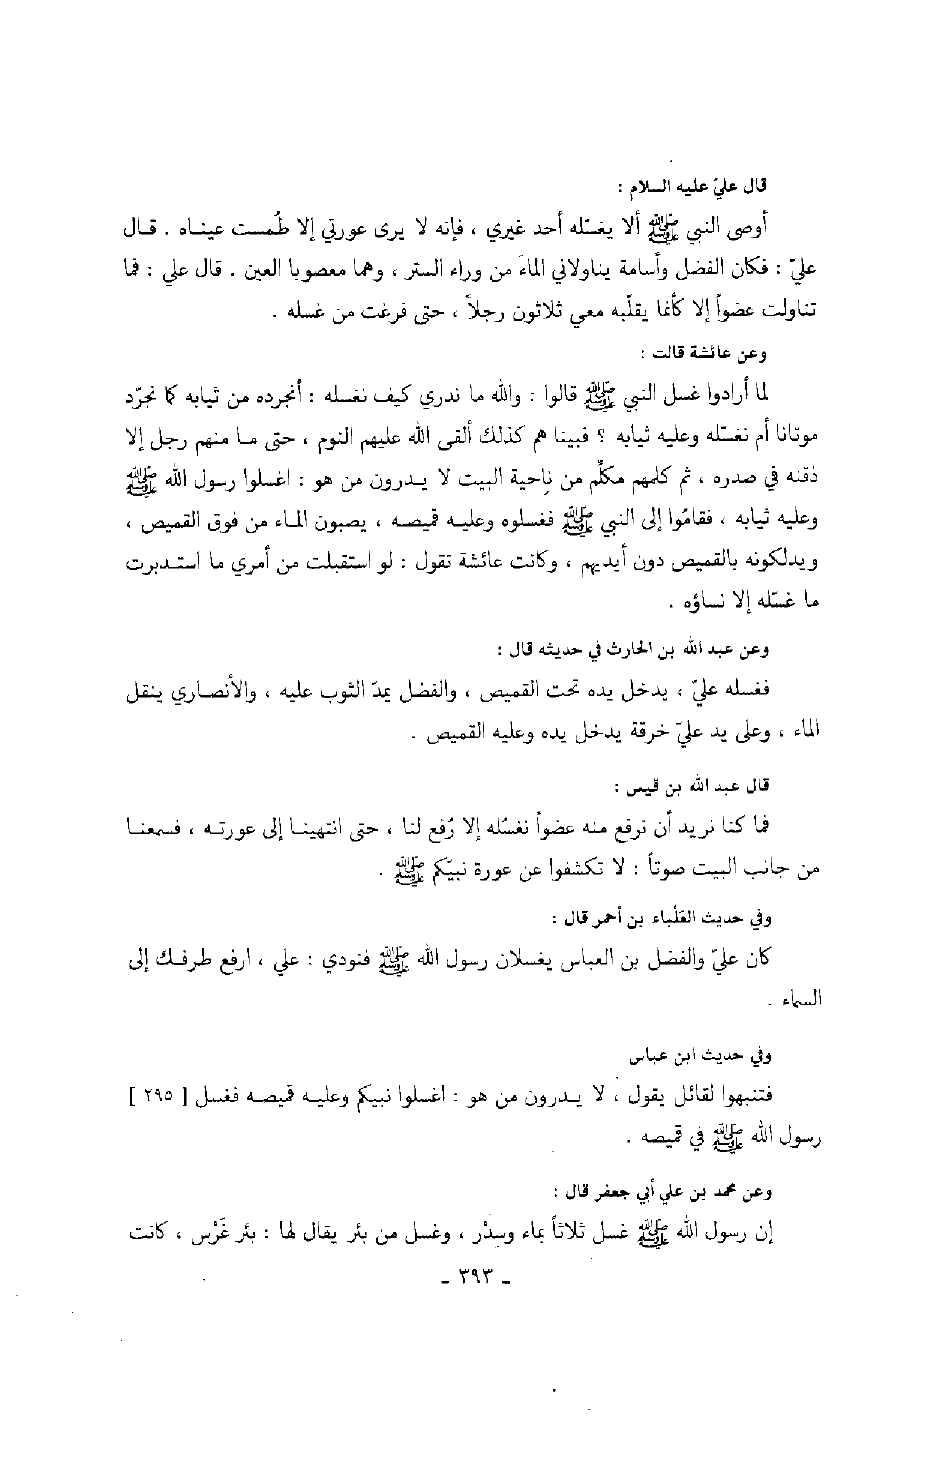 قال عليّ عليه السلام :
أوصى النبي ﷺ ألا يغسّله أحد غيري ، فإنه لا يرى عورتي إلا طُمست عيناه . قال
عليّ : فكان الفضل وأسامة يناولاني الماءَ من وراء الستر ، وهما معصوبا العين . قال علي : فما
تناولت عضواً إلا كأنما يقلّبه معي ثلاثون رجلاً ، حتى فرغت من غسله .
وعن عائشة قالت :
لما أرادوا غسل النبي ﷺ قالوا : والله ما ندري كيف نغسله : أنجرده من ثيابه كما نجرّد
موتانا أم نغسّله وعليه ثيابه ؟ فبينا هم كذلك ألقى الله عليهم النوم ، حتى ما منهم رجل إلا
ذقنه في صدره ، ثم كلمهم مكلّم من ناحية البيت لا يدرون من هو : اغسلوا رسول الله ﷺ
وعليه ثيابه ، فقاموا إلى النبي ﷺ فغسلوه وعليه قميصه ، يصبون الماء من فوق القميص ،
ويدلكونه بالقميص دون أيديهم ، وكانت عائشة تقول : لو استقبلت من أمري ما استدبرت
ما غسّله إلا نساؤه .
وعن عبد الله بن الحارث في حديثه قال :
فغسله عليّ ، يدخل يده تحت القميص ، والفضل يمدّ الثوب عليه ، والأنصاري ينقل
الماء ، وعلى يد عليّ خرقة يدخل يده وعليه القميص .
قال عبد الله بن قيس :
فما كنا نريد أن نرفع منه عضواً نغسّله إلا رُفع لنا ، حتى انتهينا إلى عورته ، فسمعنا
من جانب البيت صوتاً : لا تكشفوا عن عورة نبيّكم ﷺ .
وفي حديث العَلْباء بن أحمر قال :
كان عليّ والفضل بن العباس يغسلان رسول الله ﷺ فنودي : علي ، ارفع طرفك إلى
السماء .
وفي حديث ابن عباس
فتنبهوا لقائل يقول ، لا يدرون من هو : اغسلوا نبيكم وعليه قميصه فغسل [ ٢٩٥ ]
رسول الله ﷺ في قميصه .
وعن محمد بن علي أبي جعفر قال :
إن رسول الله ﷺ غسل ثلاثاً بماء وسِدْر ، وغسل من بئر يقال لها : بئر غَرْس ، كانت
- ٣٩٣ -